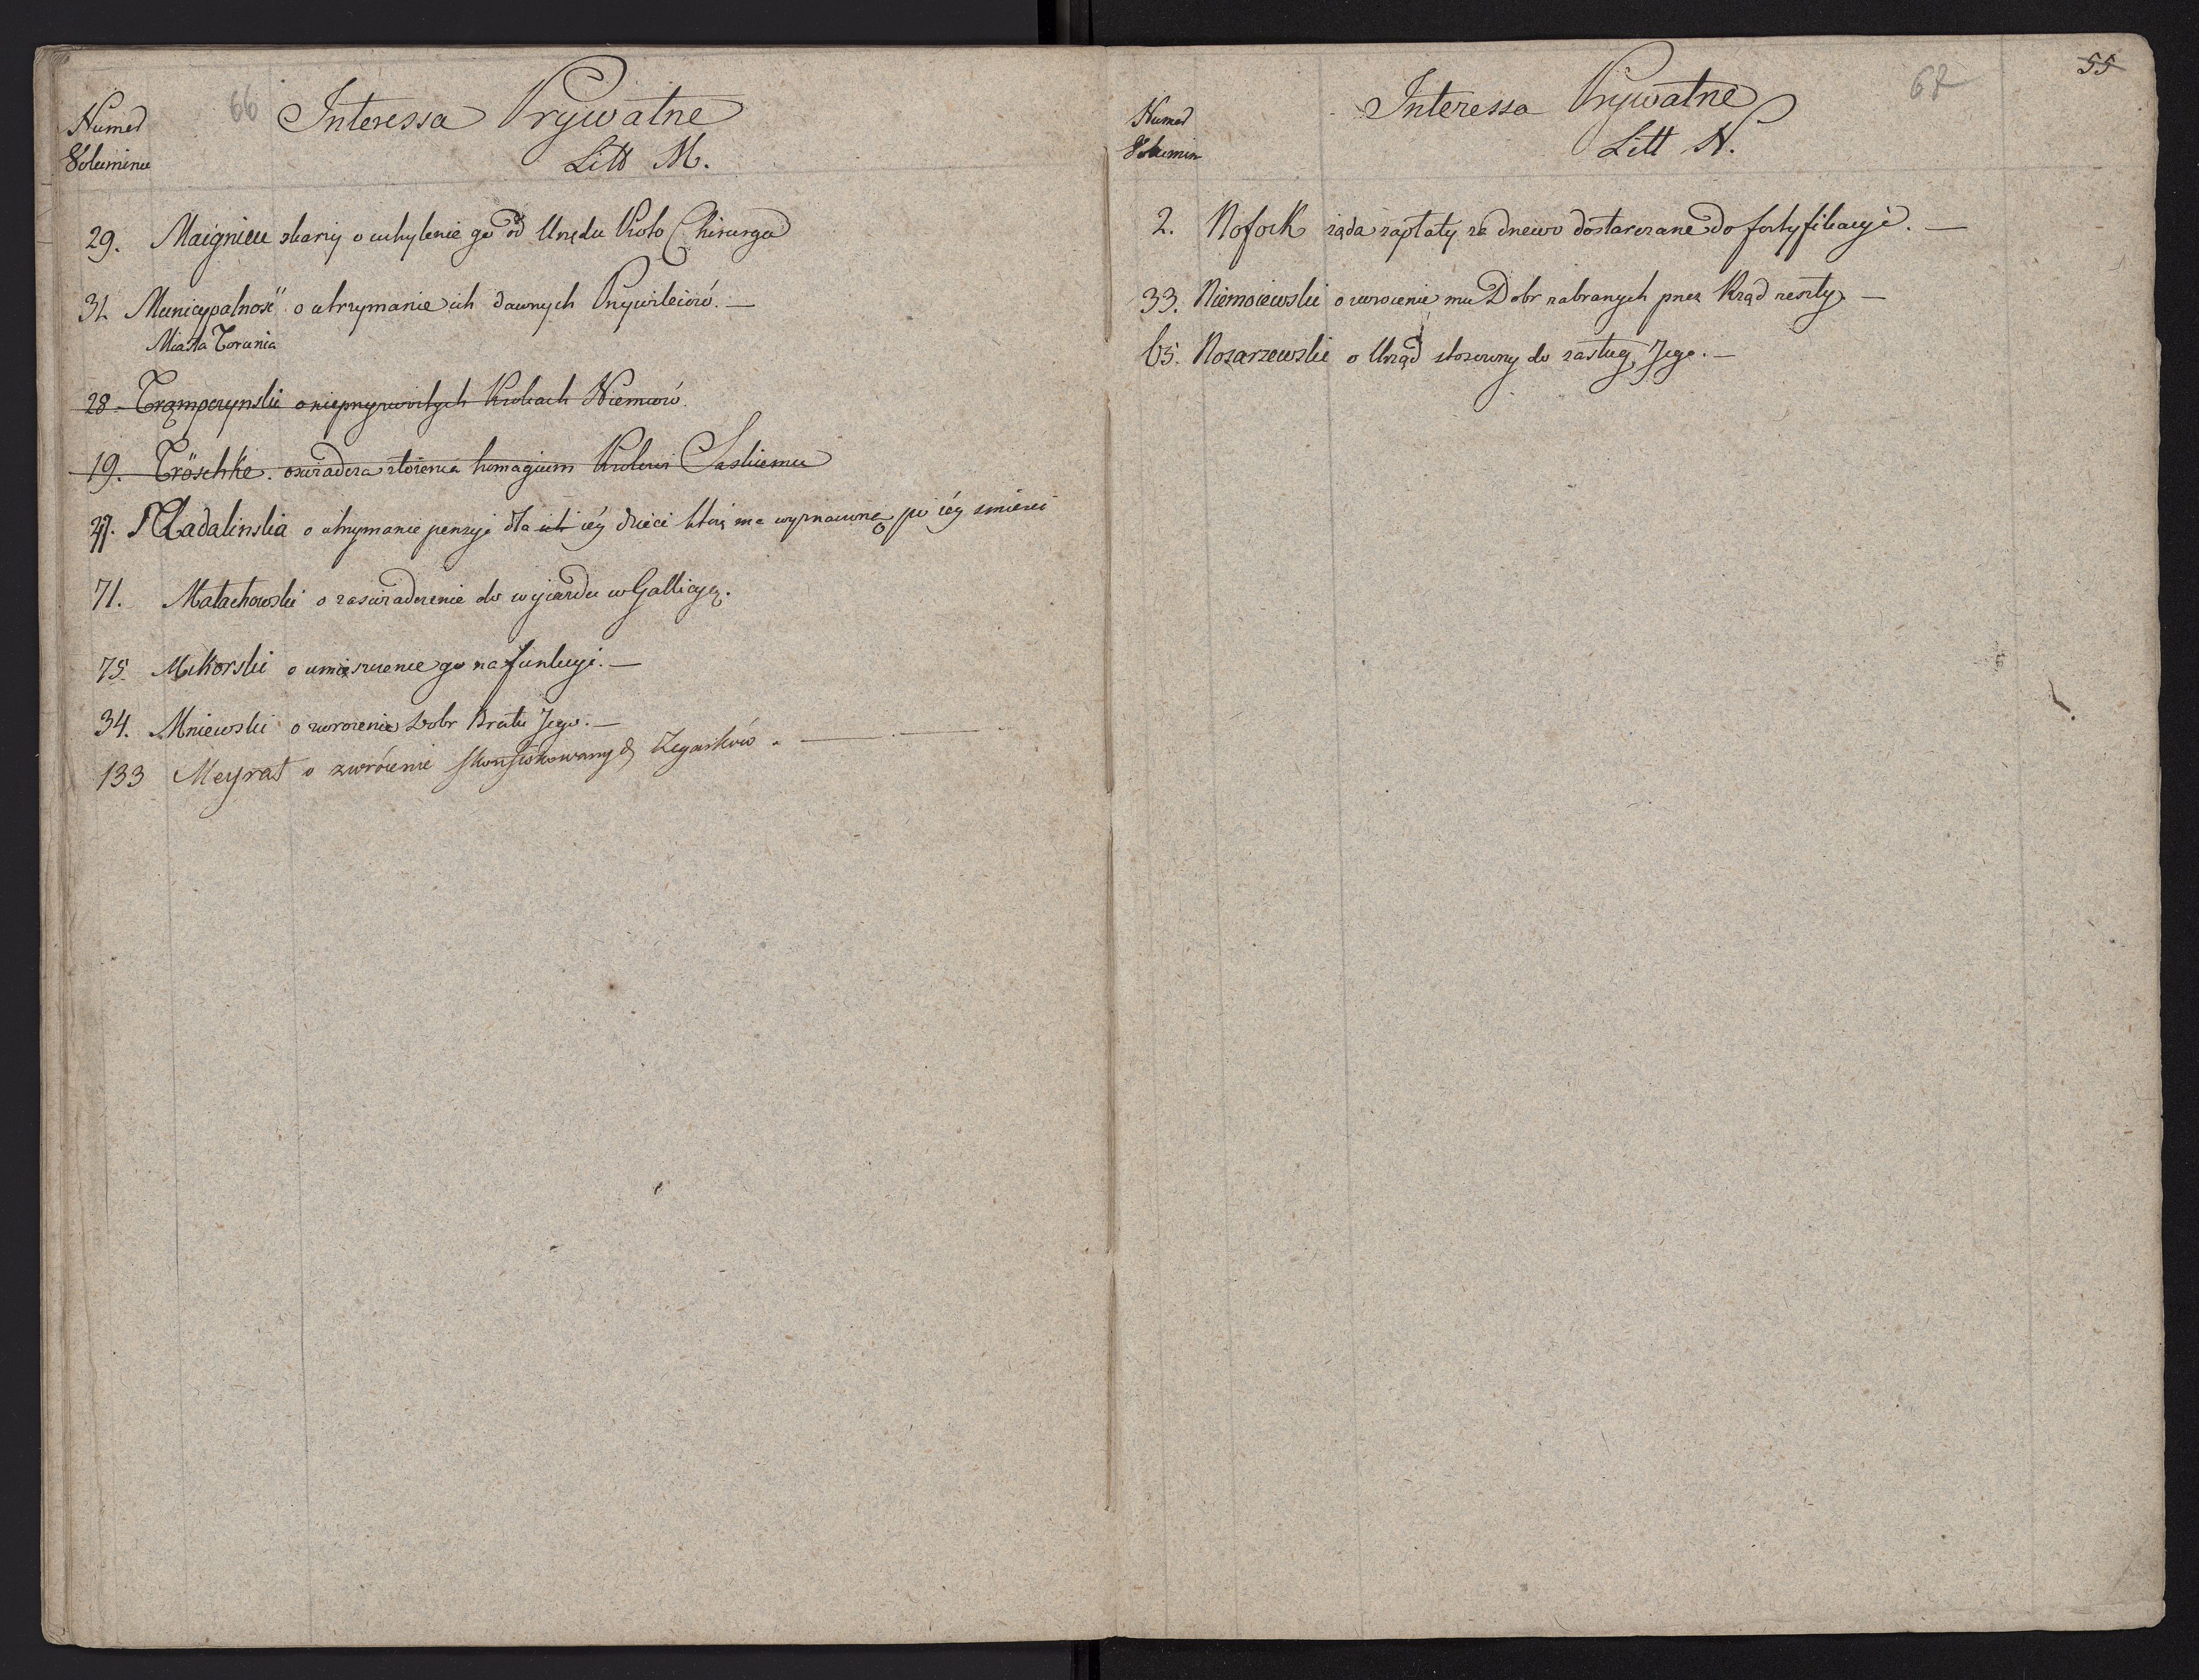 66
Interessa Prywatne
Numer
Litt M.
Voluminu
29. Maignien skarży o uchylenie go od Urzędu Proto Chirurga
31. Municypalność o utrzymanie ich dawnych Przywileiów. —
Miasta Torunia
28. Trąmpczynski o nieprzyzwoitych krokach Niemców.
19. Tröschke. oswiadcza złożenia homagium Krolowi Saskiemu
27. Madalinska o utrzymanie pensyi dla ich iéy dzieci którą ma wyznaczoną po iéy smierci
71. Małachowski o zaswiadczenie do wyiazdu w Gallicyą.
75. Mikorski o umieszczenie go na funkcyi. —
34. Mniewski o zwrocenie Dobr Bratu Jego. —
133 Meyrat o zwrócenie skonfiskowanych Zegarków. —
55
67
Interessa Prywatne
Numer
Litt N.
Volumin
2. Nofock żąda zapłaty za drzewo dostarczane do fortyfikacyi. —
33. Niemoiewski o zwrocenie mu Dobr zabranych przez Rząd reszty —
65. Nosarzewski o Urząd stosowny do zasług Jego. —